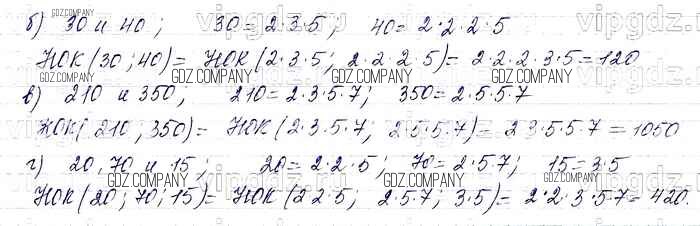 б) 30 и 40; 30=2·3·5; 40=2·2·2·5
НОК(30;40)= НОК(2·3·5; 2·2·2·5)= 2·2·2·3·5=120
в) 210 и 350; 210=2·3·5·7; 350=2·5·5·7
НОК(210; 350)= НОК(2·3·5·7; 2·5·5·7)= 2·3·5·5·7=1050
г) 20, 70 и 15; 20=2·2·5; 70=2·5·7; 15=3·5
НОК(20; 70; 15)= НОК(2·2·5; 2·5·7; 3·5)= 2·2·3·5·7=420.
GDZ.COMPANY
GDZ.COMPANY
GDZ.COMPANY
GDZ.COMPANY
GDZ.COMPANY
GDZ.COMPANY
GDZ.COMPANY
GDZ.COMPANY
GDZ.COMPANY
GDZ.COMPANY
vipgdz.com